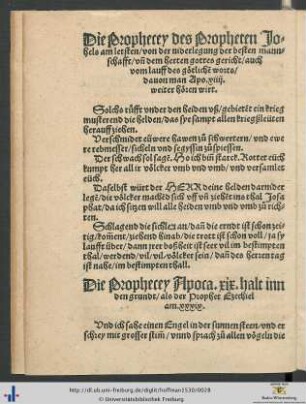 Die Prophecey des Propheten Jo-
hels am letsten/von der niderlegung der besten mann-
schafft/vñ dem herten gottes gericht/auch
vom lauff des götlichē worts/
dauon man Apo.xiiij.
weiter hören wirt.
Solchs rüfft vnder den heiden vß/gebietēt ein krieg
musterend die helden/das sye sampt allen kriegßleüten
herauff ziehen.
Verschmidet eüwere hawen zů schwertern/vnd ewe
re rebmesser/sicheln vnd segyssin zů spiessen.
Der schwach sol sagē. Ho ich bin starck. Rottet eüch
kumpt her all ir völcker vmb vnd vmb/vnd versamlet
eüch.
Daselbst würt der HERR deine helden darnider
legē/die völcker machēd sich vff vñ ziehēt ins thal Josa
phat/da ich sitzen will alle heiden vmb vnd vmb zů rich-
ten.
Schlagend die sichlen an/dañ die erndt ist schon zei-
tig/kom̃ent/ziehend hinab/die trott ist schon voll/ja sy
laufft über/dann jrer boßheit ist seer vil im bestimpten
thal/werdend/vil/völcker sein/dañ des herzen tag
ist nahe/im bestimpten thall.
Die Prophecey Apoca. xix. halt inn
den grundt/als der Prophet Ezechiel
am.xxxix.
Vnd ich sahe einen Engel in der sunnen steen/vnd er
schrey mit grosser stim̃/vnnd sprach zů allen vöglen die
http://dl.ub.uni-freiburg.de/diglit/hoffman1530/0028
© Universitätsbibliothek Freiburg
Baden-Württemberg